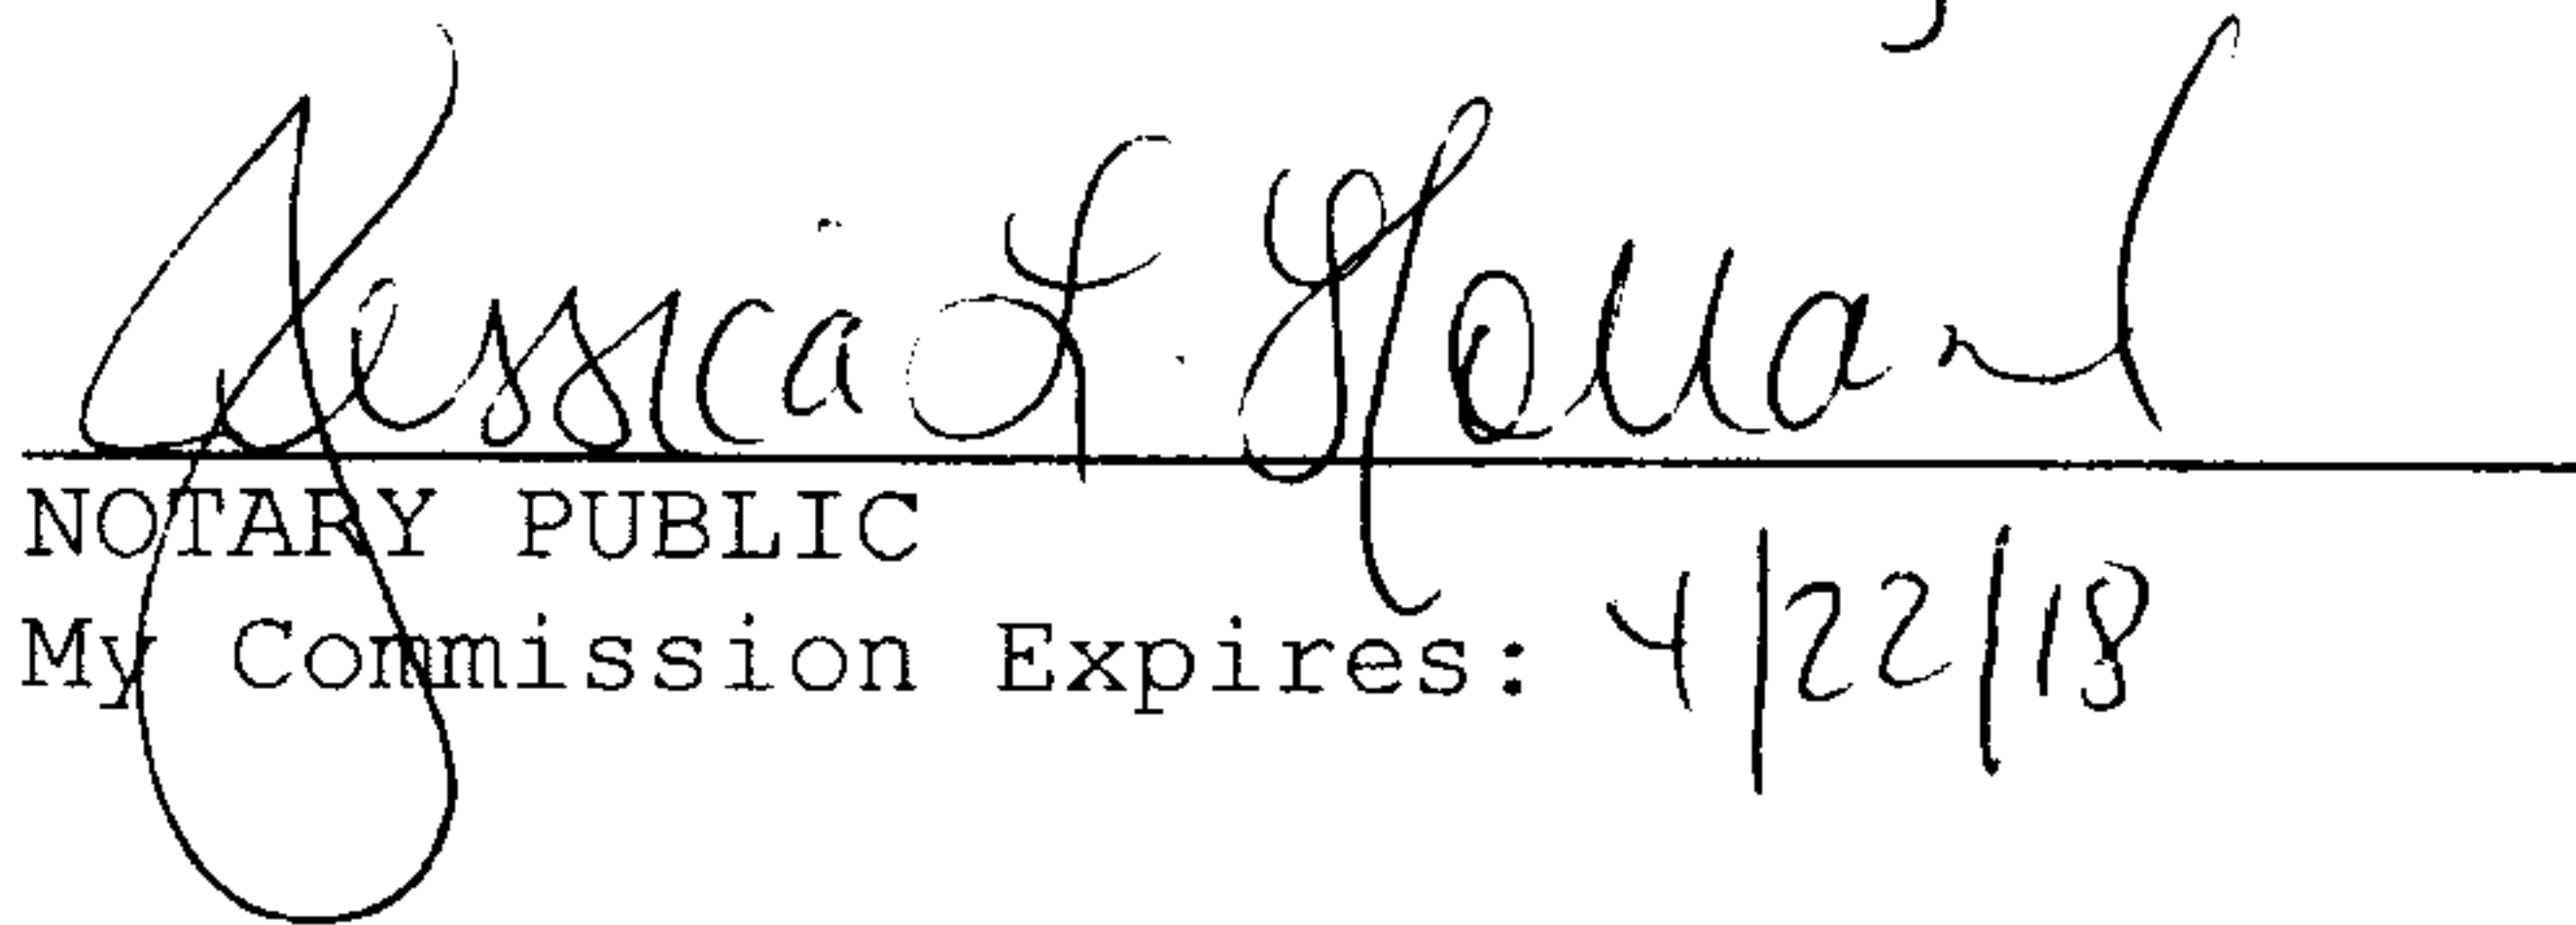 Jessica L. Holland
NOTARY PUBLIC
My Commission Expires: 4/22/18